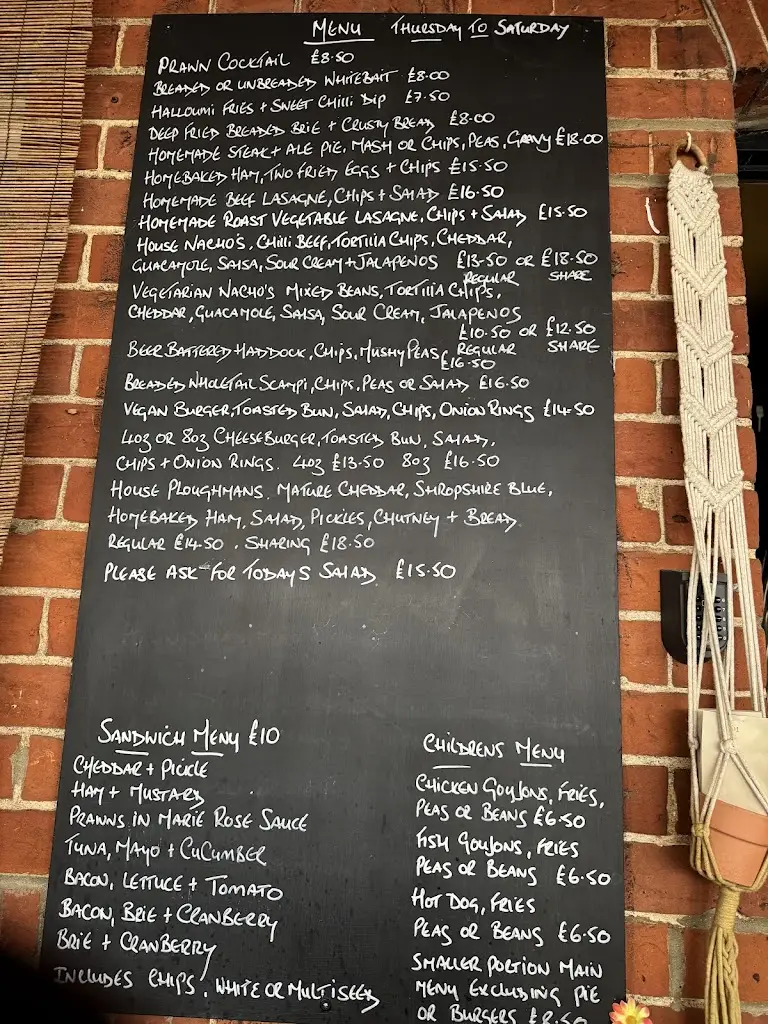 MENU THURSDAY TO SATURDAY
PRAWN COCKTAIL £8.50
BREADED OR UNBREADED WHITEBAIT £8.00
HALLOUMI FRIES + SWEET CHILLI DIP £7.50
DEEP FRIED BREADED BRIE + CRUSTY BREAD £8.00
HOMEMADE STEAK + ALE PIE, MASH OR CHIPS, PEAS, GRAVY £18.00
HOMEBAKED HAM, TWO FRIED EGGS + CHIPS £15.50
HOMEMADE BEEF LASAGNE, CHIPS + SALAD £16.50
HOMEMADE ROAST VEGETABLE LASAGNE, CHIPS + SALAD £15.50
HOUSE NACHO'S, CHILLI BEEF, TORTILLA CHIPS, CHEDDAR,
GUACAMOLE, SALSA, SOUR CREAM + JALAPENOS £13.50 OR £18.50
REGULAR SHARE
VEGETARIAN NACHO'S MIXED BEANS, TORTILLA CHIPS,
CHEDDAR, GUACAMOLE, SALSA, SOUR CREAM, JALAPENOS
£10.50 OR £12.50
REGULAR SHARE
BEER BATTERED HADDOCK, CHIPS, MUSHY PEAS £16.50
BREADED WHOLETAIL SCAMPI, CHIPS, PEAS OR SALAD £16.50
VEGAN BURGER, TOASTED BUN, SALAD, CHIPS, ONION RINGS £14.50
4OZ OR 8OZ CHEESEBURGER, TOASTED BUN, SALAD,
CHIPS + ONION RINGS. 4OZ £13.50 8OZ £16.50
HOUSE PLOUGHMANS. MATURE CHEDDAR, SHROPSHIRE BLUE,
HOMEBAKED HAM, SALAD, PICKLES, CHUTNEY + BREAD
REGULAR £14.50 . SHARING £18.50
PLEASE ASK FOR TODAYS SALAD £15.50
SANDWICH MENU £10
CHEDDAR + PICKLE
HAM + MUSTARD
PRAWNS IN MARIE ROSE SAUCE
TUNA, MAYO + CUCUMBER
BACON, LETTUCE + TOMATO
BACON, BRIE + CRANBERRY
BRIE + CRANBERRY
INCLUDES CHIPS. WHITE OR MULTISEED
CHILDRENS MENU
CHICKEN GOUJONS, FRIES,
PEAS OR BEANS £6.50
FISH GOUJONS, FRIES
PEAS OR BEANS £6.50
HOT DOG, FRIES
PEAS OR BEANS £6.50
SMALLER PORTION MAIN
MENU EXCLUDING PIE
OR BURGERS £8.50